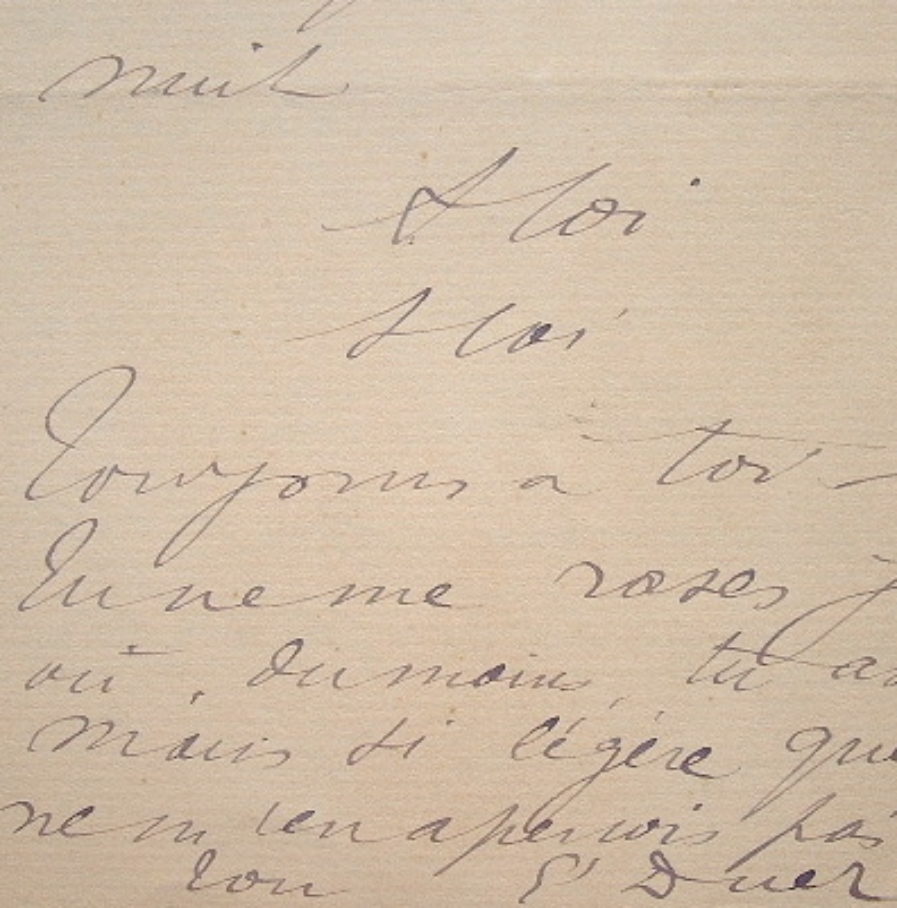 nuit
A toi
A toi
Toujours à toi —
Tu ne me rases j
ou, du moins, tu as
mais si légère que
ne m'en aperçois pas
Ton